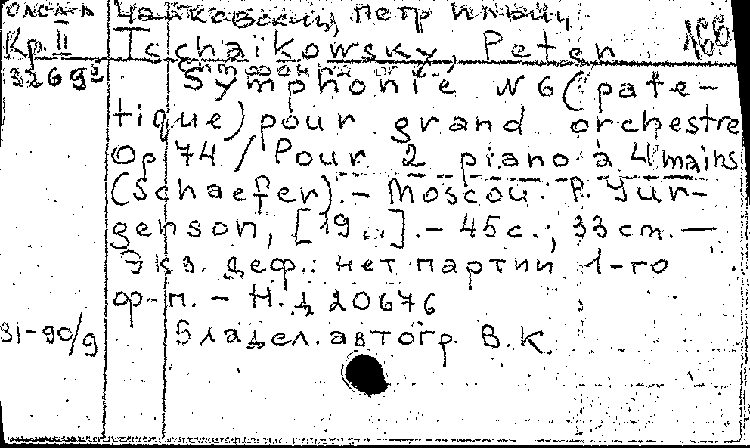 Чайковский, Петр Ильич
Кр. II Tschaïkowsky, Peter 166
Symphonie N 6 (pate-
tique) pour grand orchestre
Op 74 / Pour 2 piano à 4 mains
(Schaefer). - Moscou: P. Jur-
genson, [19..]. - 45 с.; 33 cm. —
Экз. деф.: нет партии 1-го
ф-п. - Н. д. 20676
31-90/9 Владел. автогр. В.К.